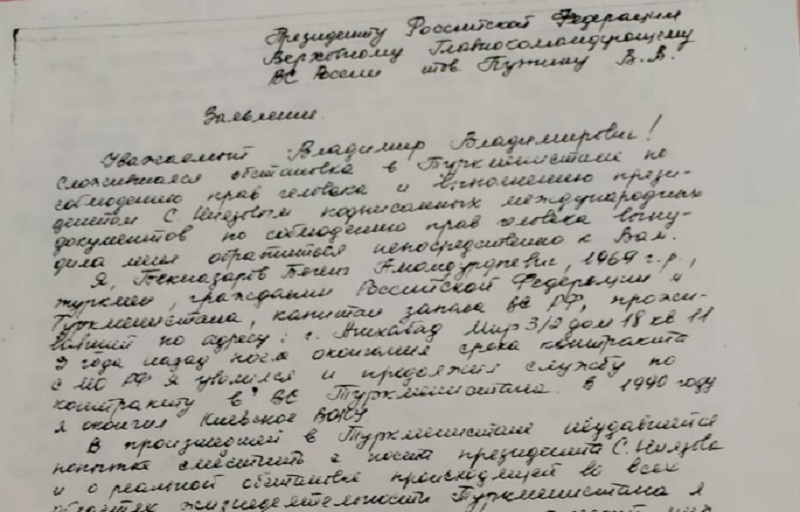 Президенту Российской Федерации
Верховному Главнокомандующему
ВС России тов. Путину В.В.
Заявление.
Уважаемый Владимир Владимирович!
Сложившаяся обстановка в Туркменистане по
соблюдению прав человека и выполнению прези-
дентом С. Ниязовым подписанных международных
документов по соблюдению прав человека выну-
дила меня обратиться непосредственно к Вам.
Я, Бекназаров Бегенч Амандурдыевич, 1969 г.р.,
туркмен, гражданин Российской Федерации и
Туркменистана, капитан запаса ВС РФ, прожи-
вавший по адресу: г. Ашхабад Мир 3/2 дом 18 кв 11
года назад после окончания срока контракта
с МО РФ я уволился и продолжил службу по
контракту в ВС Туркменистана. В 1990 году
я окончил Киевское ВОКУ
В произошедшей в Туркменистане неудавшейся
попытке сместить с поста президента С. Ниязова
и о реальной обстановке происходящей во всех
областях жизнедеятельности Туркменистана я